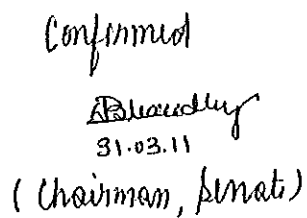 Confirmed
31.03.11
(Chairman, Senate)